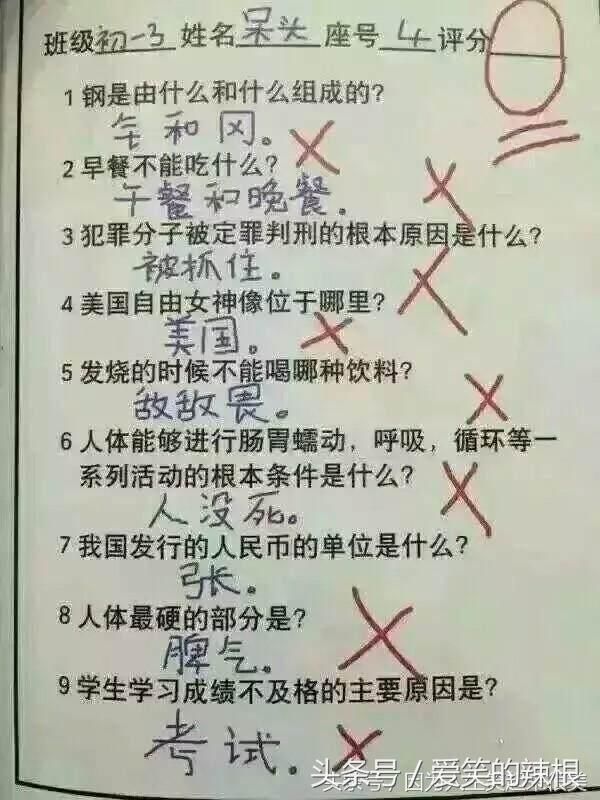 班级初一3 姓名呆头 座号 4 评分0
1 钢是由什么和什么组成的?
钅和冈。
2 早餐不能吃什么?
午餐和晚餐.
3 犯罪分子被定罪判刑的根本原因是什么?
被抓住。
4 美国自由女神像位于哪里?
美国。
5 发烧的时候不能喝哪种饮料?
敌敌畏。
6 人体能够进行肠胃蠕动，呼吸，循环等一
系列活动的根本条件是什么?
人没死。
7 我国发行的人民币的单位是什么?
张.
8 人体最硬的部分是?
脾气.
9 学生学习成绩不及格的主要原因是?
考试.
头条号/爱笑的辣根